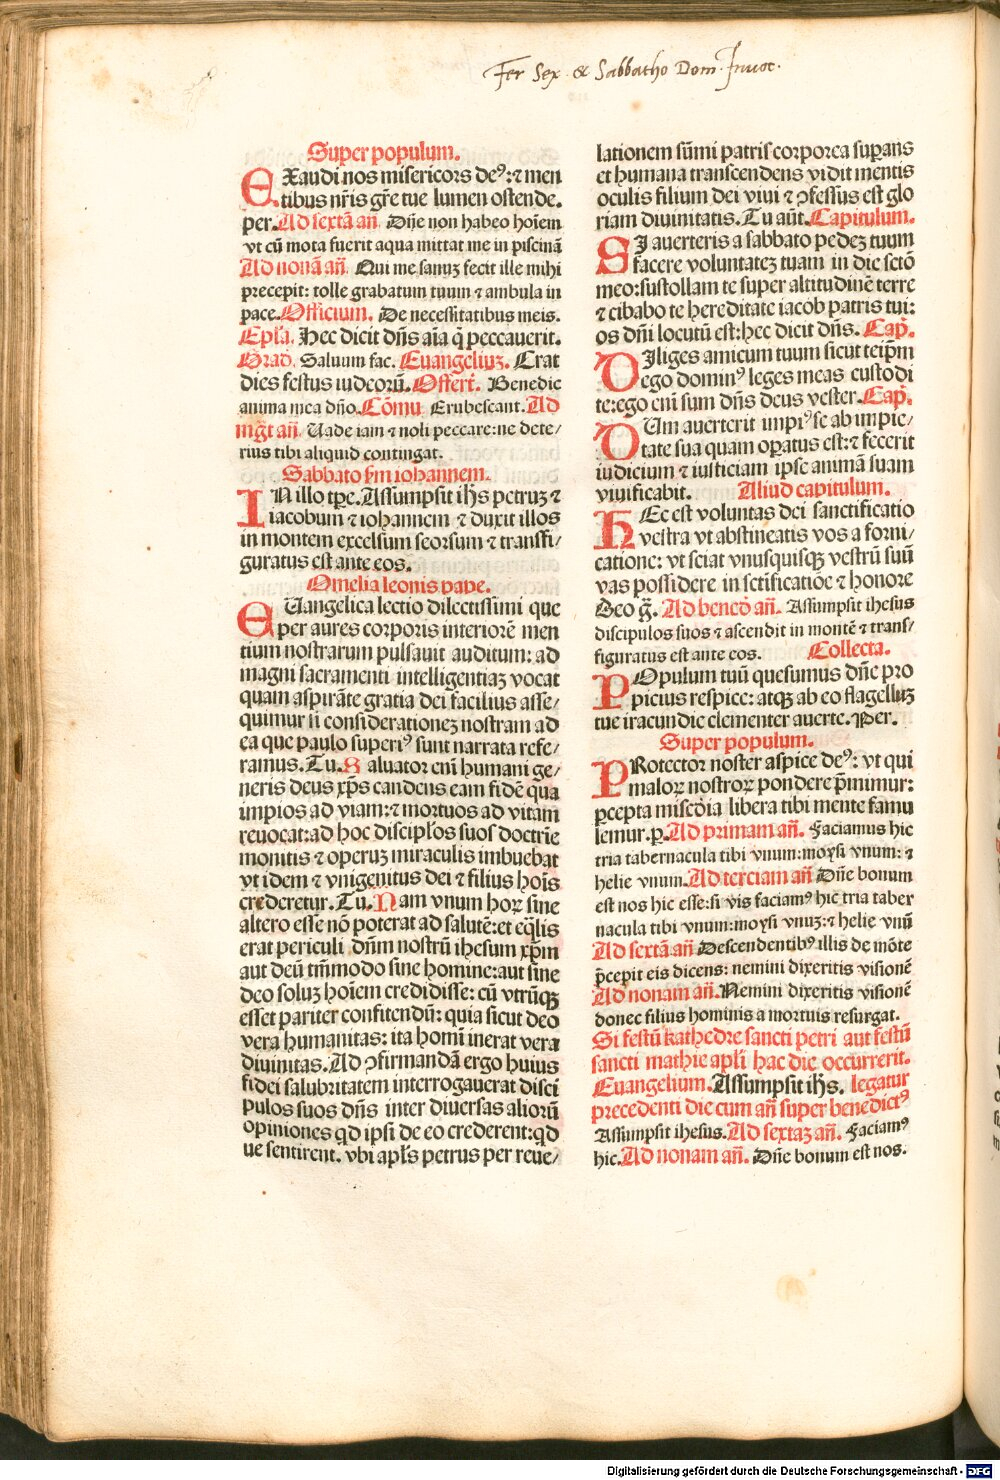 Fer Sex & Sabbatho Dom. Invoc.
Super populum.
EXaudi nos misericors deꝰ: ⁊ men
tibus nr̄is gr̄e tue lumen ostende.
per. Ad sextā añ. Dn̄e non habeo hoīem
vt cū mota fuerit aqua mittat me in piscinā
Ad nonā añ. Qui me sanuꝫ fecit ille mihi
precepit: tolle grabatum tuum ⁊ ambula in
pace. Officium. De necessitatibus meis.
Epl̄a. Hec dicit dn̄s aīa q̄ peccauerit.
Grad. Saluum fac. Euangeliuꝫ. Erat
dies festus iudeorū. Offert̄. Benedic
anima mea dn̄o. Cōmu Erubescant. Ad
mgt̄ añ. Uade iam ⁊ noli peccare: ne dete/
rius tibi aliquid contingat.
Sabbato s̄m iohannem.
IN illo tp̄e. Assumpsit ih̄s petruꝫ ⁊
iacobum ⁊ iohannem ⁊ duxit illos
in montem excelsum seorsum ⁊ transfi/
guratus est ante eos.
Omelia leonis pape.
EUangelica lectio dilectissimi que
per aures corporis interiorē men
tium nostrarum pulsauit auditum: ad
magni sacramenti intelligentiaꝫ vocat
quam aspirāte gratia dei facilius asse/
quimur si considerationeꝫ nostram ad
ea que paulo superiꝰ sunt narrata refe/
ramus. Tu. Saluator em̄ humani ge/
neris deus xp̄s candens eam fidē qua
impios ad viam: ⁊ mortuos ad vitam
reuocat: ad hoc discipl̄os suos doctrīe
monitis ⁊ operuꝫ miraculis imbuebat
vt idem ⁊ vnigenitus dei ⁊ filius hoīs
crederetur. Tu. Nam vnum hoꝝ sine
altero esse nō poterat ad salutē: et eq̄lis
erat periculi dn̄m nostrū ihesum xp̄m
aut deū tm̄modo sine homine: aut sine
deo soluꝫ hoīem credidisse: cū vtrūqꝫ
esset pariter confitendū: quia sicut deo
vera humanitas: ita homī inerat vera
diuinitas. Ad ꝯfirmandā ergo huius
fidei salubritatem interrogauerat disci
pulos suos dn̄s inter diuersas aliorū
opiniones qd ipsi de eo crederent: qd
ue sentirent. vbi apl̄s petrus per reue/
lationem sūmi patris corporea suꝑans
et humana transcendens vidit mentis
oculis filium dei viui ⁊ ꝯfessus est glo
riam diuinitatis. Tu aūt. Capitulum.
SI auerteris a sabbato pedeꝫ tuum
facere voluntateꝫ tuam in die sctō
meo: sustollam te super altitudinē terre
⁊ cibabo te hereditate iacob patris tui:
os dn̄i locutū est: hec dicit dn̄s. Cap̄.
DIliges amicum tuum sicut teip̄m
ego dominꝰ leges meas custodi
te: ego em̄ sum dn̄s deus vester. Cap̄.
DUm auerterit impiꝰ se ab impie/
tate sua quam oꝑatus est: ⁊ fecerit
iudicium ⁊ iusticiam ipse animā suam
viuificabit. Aliud capitulum.
HEc est voluntas dei sanctificatio
vestra vt abstineatis vos a forni/
catione: vt sciat vnusquisqꝫ vestrū suū
vas possidere in sctificatiōe ⁊ honore
Deo gr̄. Ad bened̄ añ. Assumpsit ihesus
discipulos suos ⁊ ascendit in montē ⁊ trans/
figuratus est ante eos. Collecta.
POpulum tuū quesumus dn̄e pro
picius respice: atqꝫ ab eo flagelluꝫ
tue iracundie clementer auerte. Per.
Super populum.
PRotector noster aspice deꝰ: vt qui
maloꝝ nostroꝝ pondere p̄mimur:
ꝑcepta miscd̄ia libera tibi mente famu
lemur. p̱. Ad primam añ. Faciamus hic
tria tabernacula tibi vnum: moysi vnum: ⁊
helie vnum. Ad terciam añ Dn̄e bonum
est nos hic esse: si vis faciamꝰ hic tria taber
nacula tibi vnum: moysi vnuꝫ: ⁊ helie vnū
Ad sextā añ Descendentibꝰ illis de mōte
p̄cepit eis dicens: nemini dixeritis visionē
Ad nonam añ. Nemini dixeritis visionē
donec filius hominis a mortuis resurgat.
Si festū kathedre sancti petri aut festū
sancti mathie apl̄i hac die occurrerit.
Euangelium. Assumpsit ih̄s. legatur
precedenti die cum añ super benedictꝰ
Assumpsit ihesus. Ad sextaꝫ añ. Faciamꝰ
hic. Ad nonam añ. Dn̄e bonum est nos.
Digitalisierung gefördert durch die Deutsche Forschungsgemeinschaft - DFG